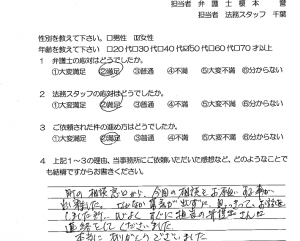 担当者 弁護士 榎本 誉
担当者 法務スタッフ 千葉
性別を教えて下さい。 □男性 ☑女性
年齢を教えて下さい □20代□30代□40代☑50代□60代□70才以上
1 弁護士の応対はどうでしたか。
①大変満足 ②満足 ③普通 ④不満 ⑤大変不満 ⑥分からない
2 法務スタッフの応対はどうでしたか。
①大変満足 ②満足 ③普通 ④不満 ⑤大変不満 ⑥分からない
3 ご依頼された件の進め方はどうでしたか。
①大変満足 ②満足 ③普通 ④不満 ⑤大変不満 ⑥分からない
4 上記1~3の理由、当事務所にご依頼いただいた感想など、どのようなことで
も結構ですからお書きください。
町の相談窓口から、今回の相談をお願いする事が
出来ました。なかなか勇気が出ずに
しました所、すぐに担当の弁護士さんに
連絡をしてくださいました。
本当にありがとうございました。